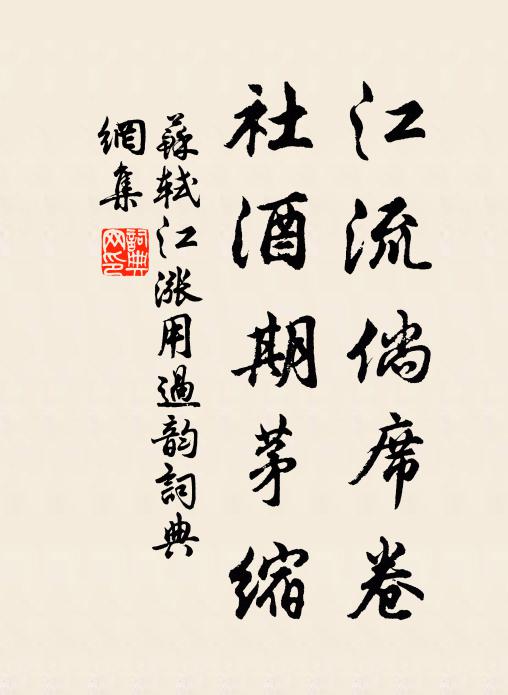 江流倘席卷
社酒期茅缩
苏轼江涨用過韵詞典
網集
詞典网印